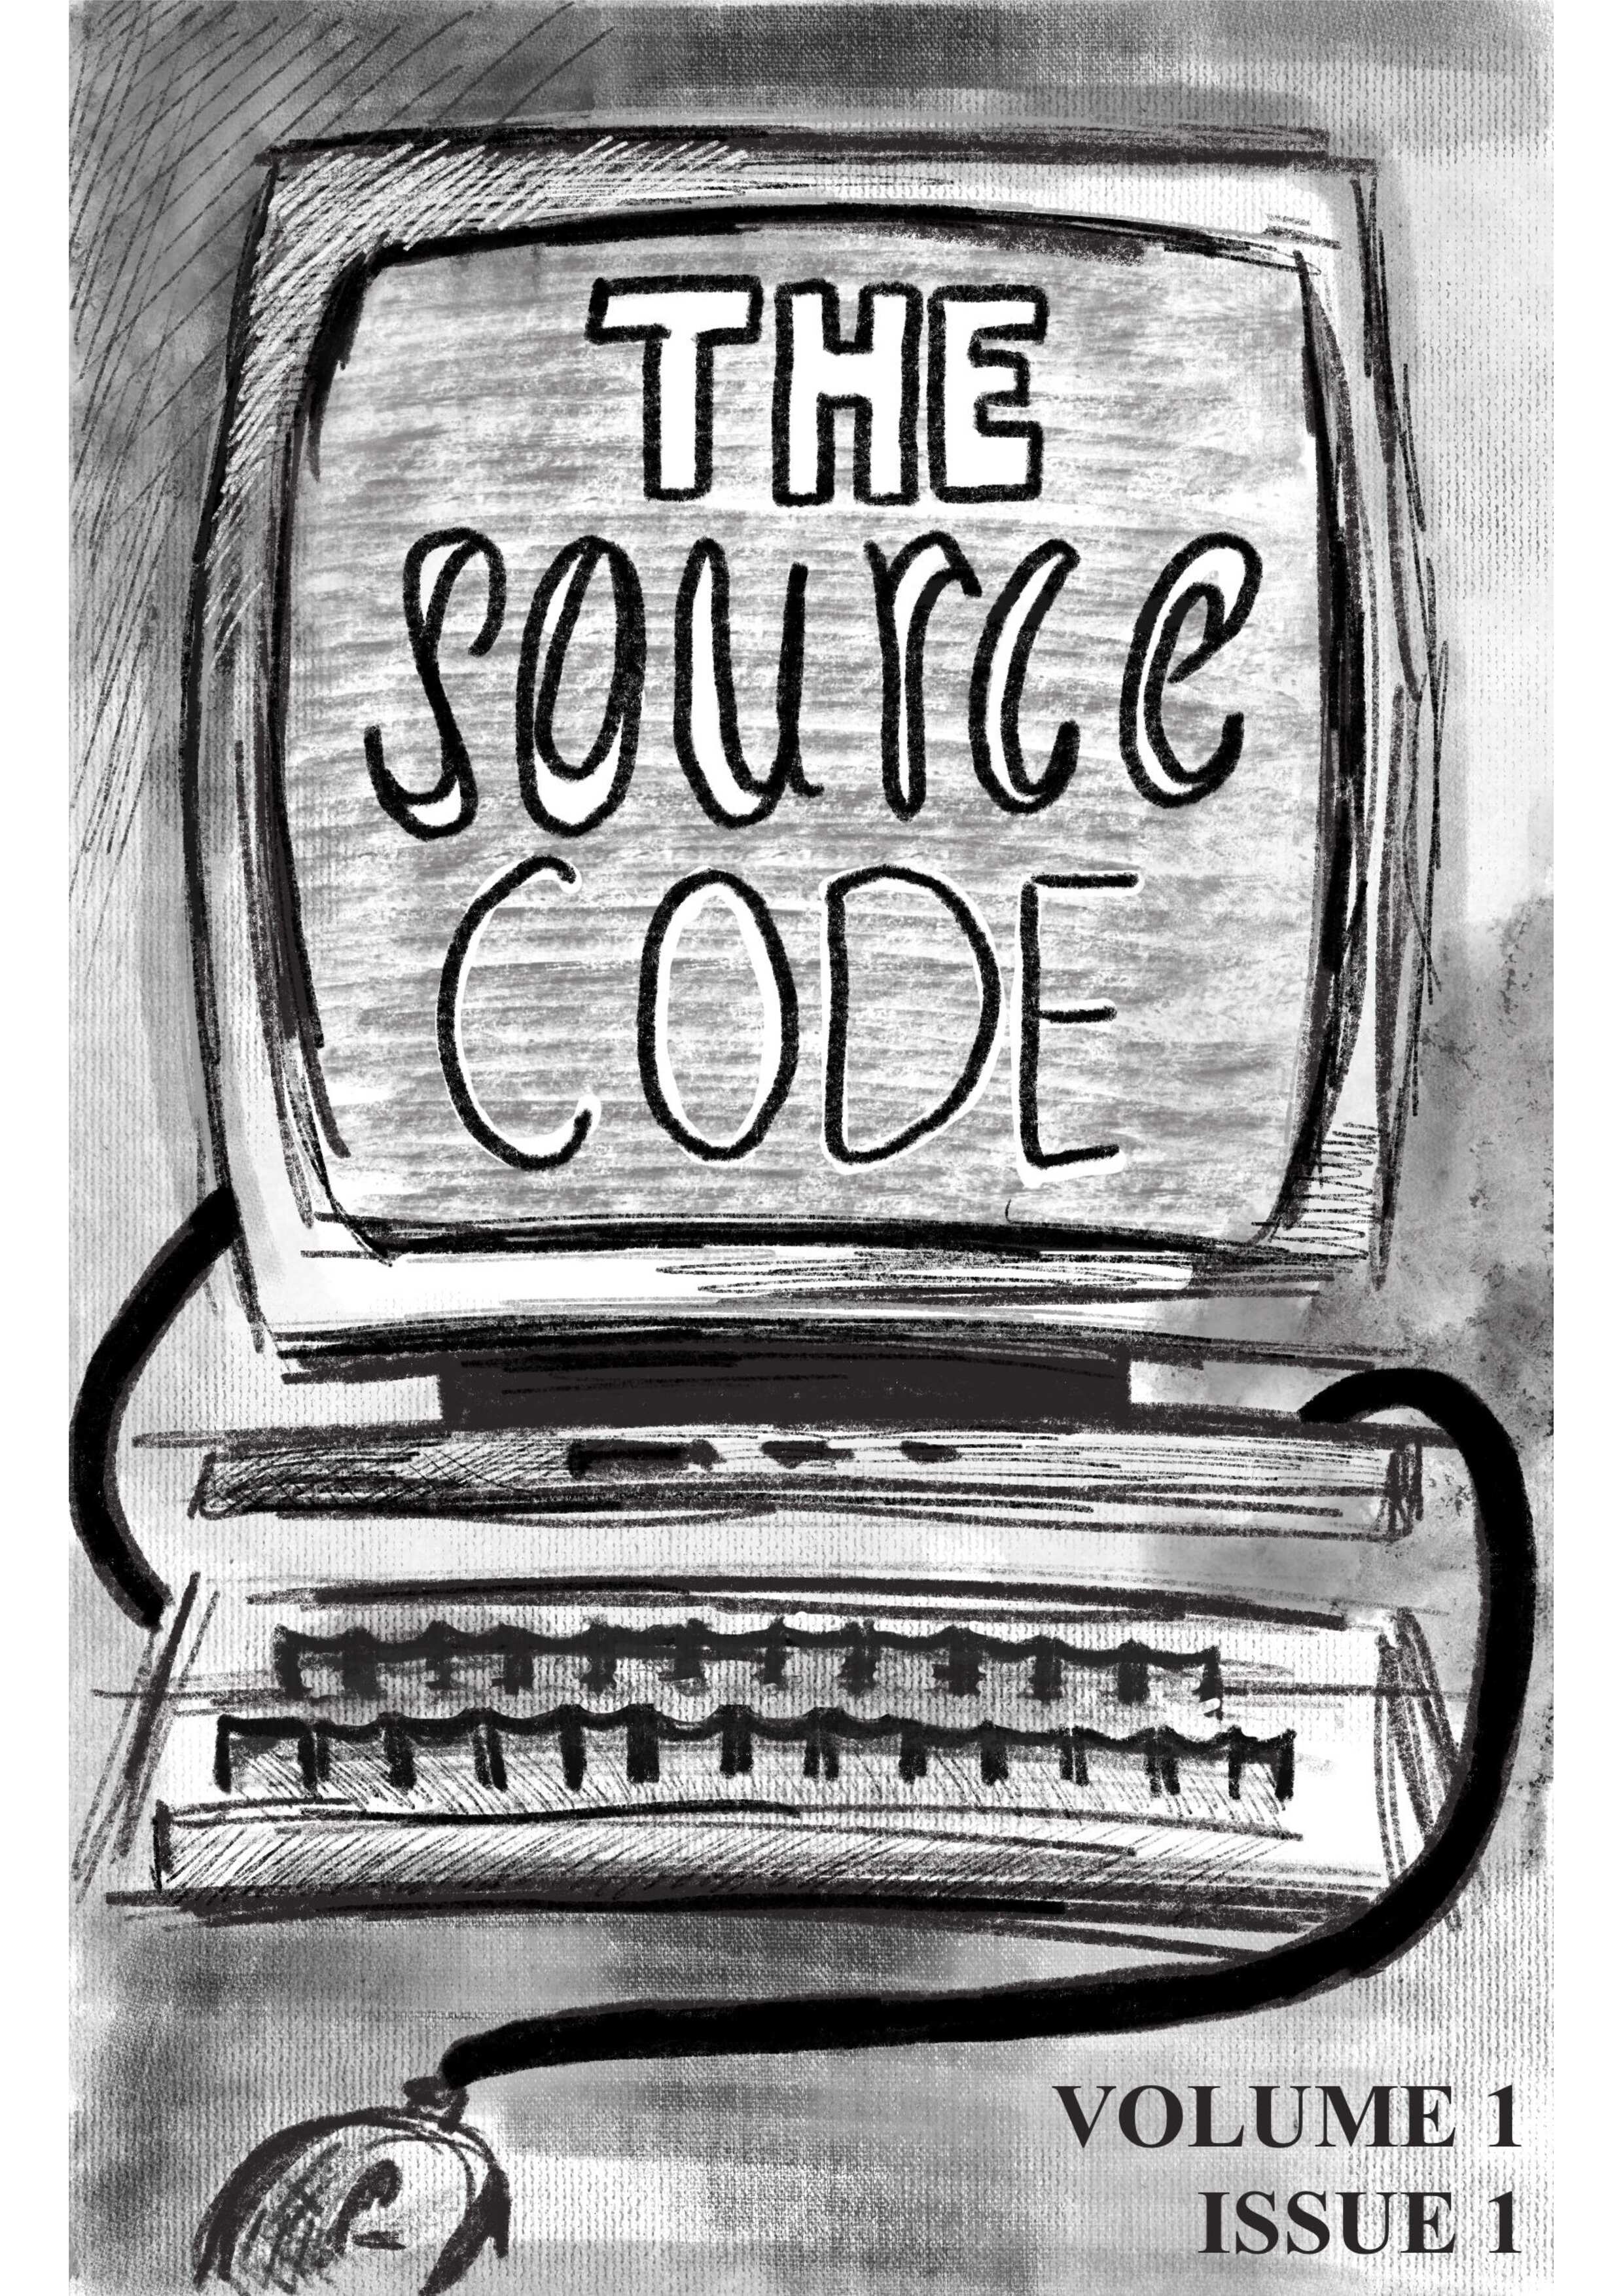 THE
source
CODE
VOLUME 1
ISSUE 1